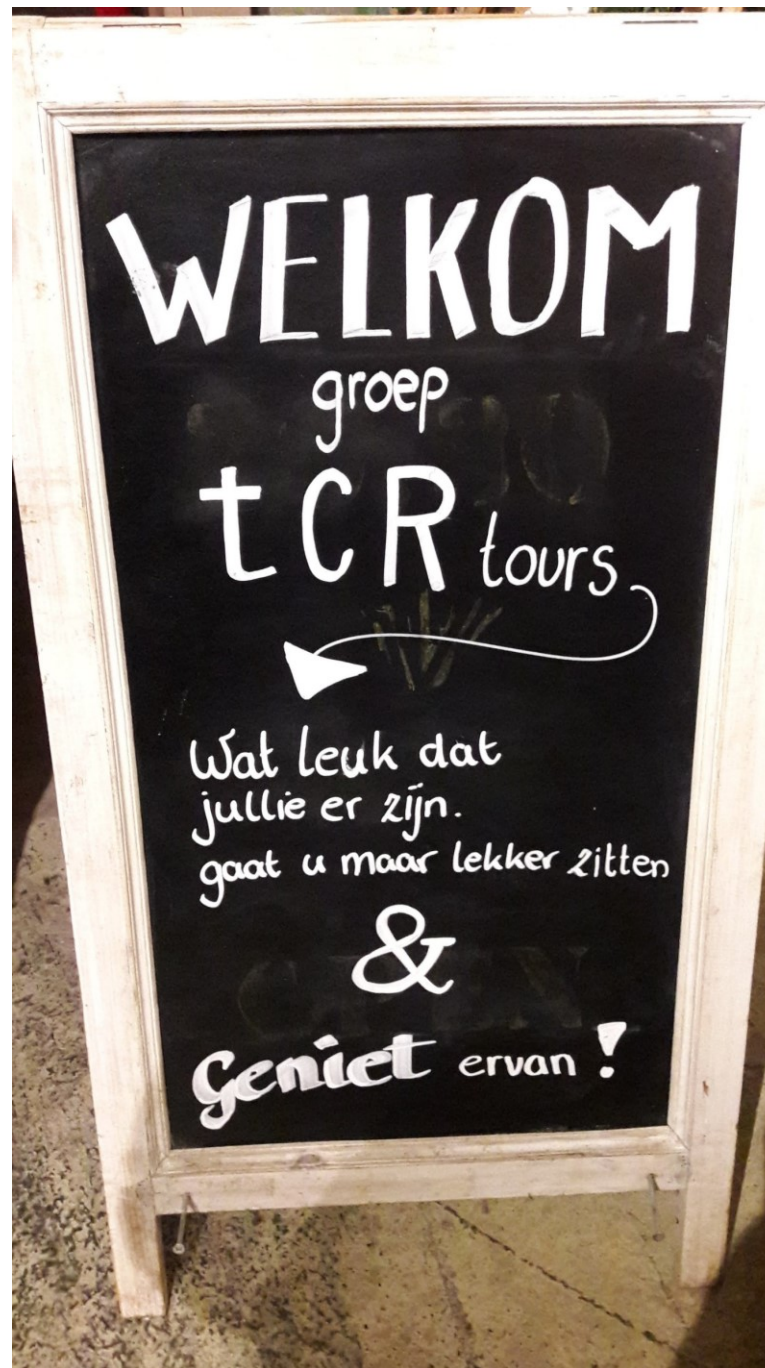 WELKOM
groep
tCR tours
Wat leuk dat
jullie er zijn.
gaat u maar lekker zitten
&
Geniet ervan!